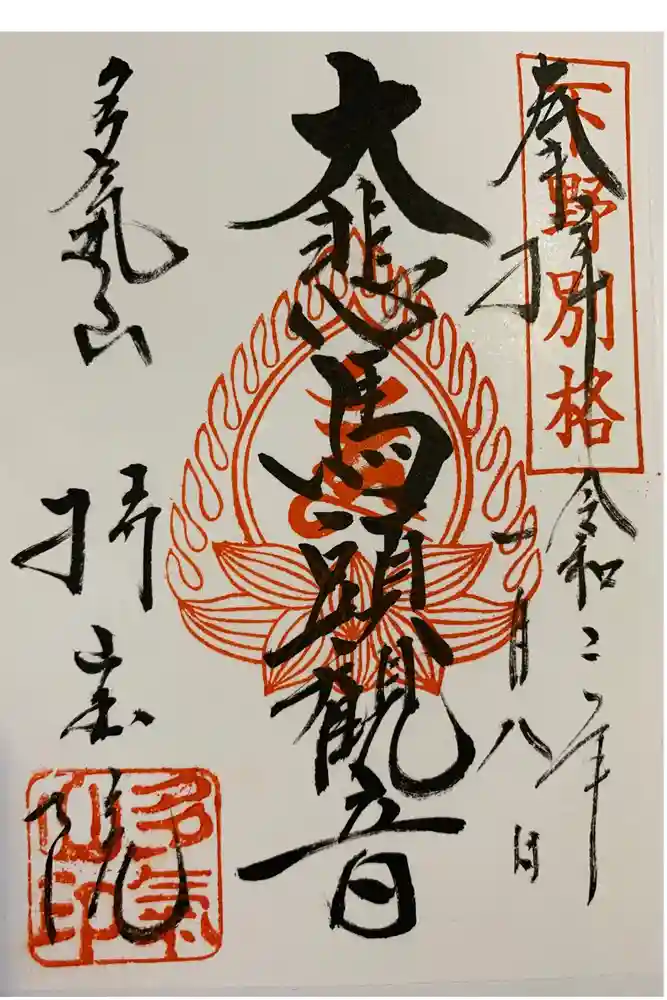 下野別格
奉拝
令和二年
一月八日
大悲馬頭観音
多氣山
持宝院
多氣山印